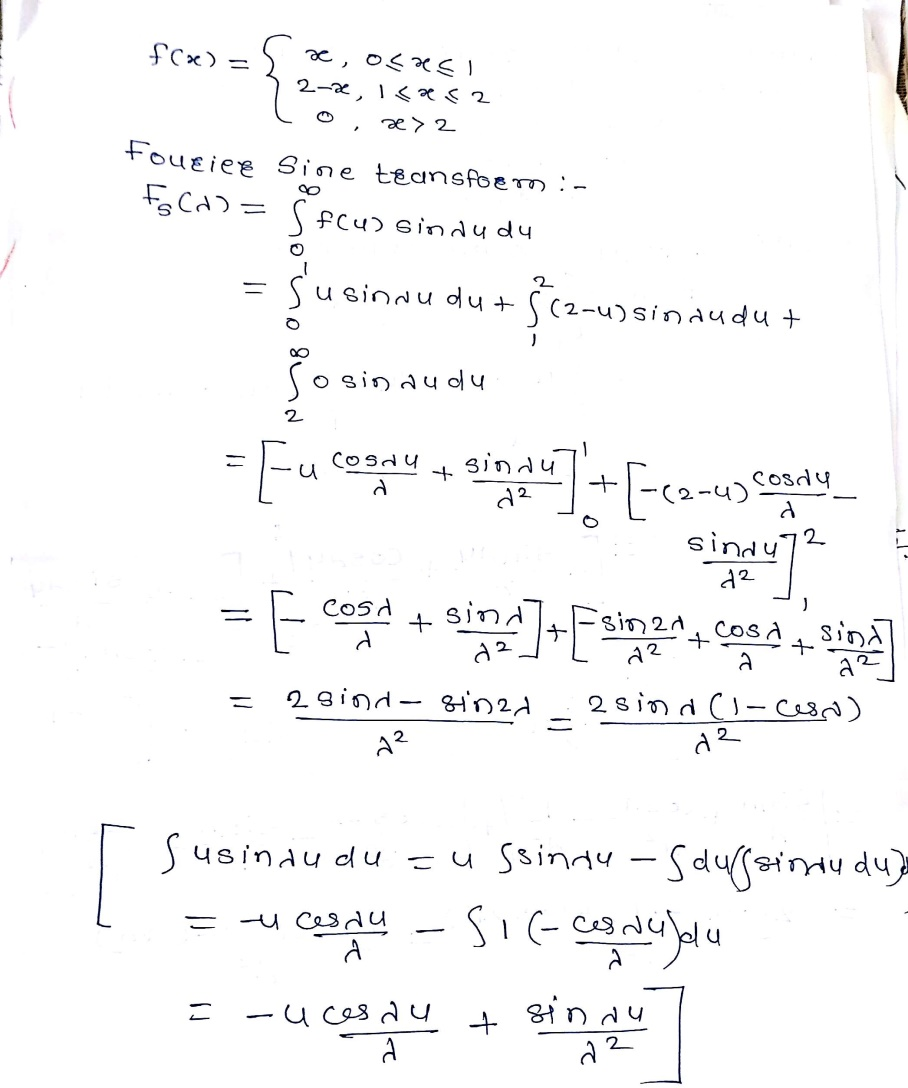 f(x) = { x, 0≤x≤1
2-x, 1≤x≤2
0, x>2
Fourier Sine transform :-
Fs(λ) = ∫₀^∞ f(u) sinλu du
= ∫₀¹ u sinλu du + ∫₁² (2-u) sinλu du +
∫₂^∞ 0 sinλu du
= [-u cosλu/λ + sinλu/λ²]₀¹ + [-(2-u) cosλu/λ -
sinλu/λ²]₁²
= [- cosλ/λ + sinλ/λ²] + [- sin2λ/λ² + cosλ/λ + sinλ/λ²]
= (2 sinλ - sin2λ)/λ² = 2 sinλ (1-cosλ)/λ²
[ ∫u sinλu du = u ∫sinλu - ∫du(∫sinλu du)
= -u cosλu/λ - ∫1 (- cosλu/λ) du
= -u cosλu/λ + sinλu/λ² ]